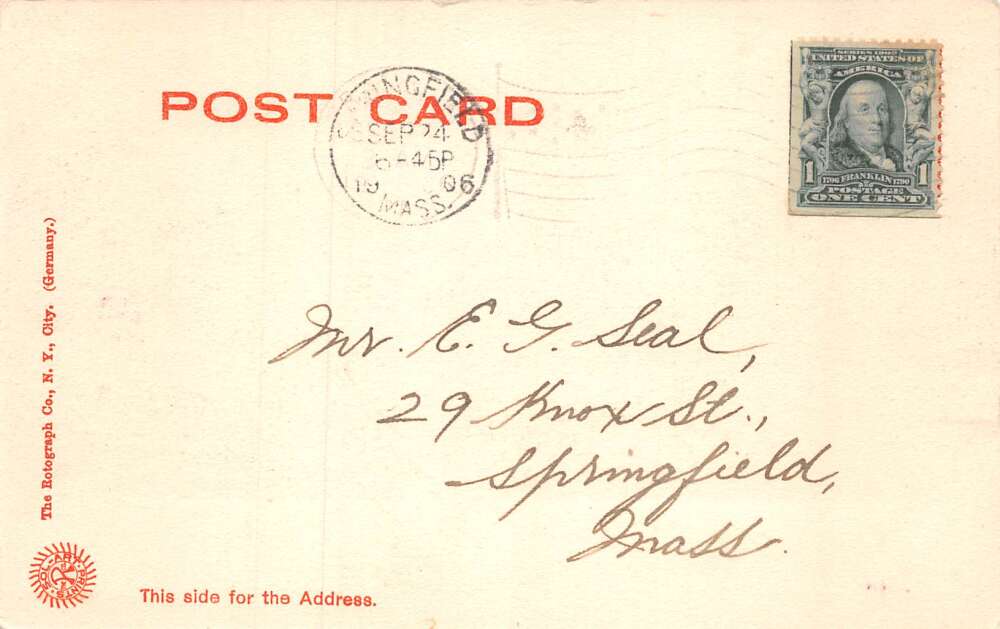 POST CARD
SPRINGFIELD
SEP 24
6-45P
1906
MASS.
SERIES 1902
UNITED STATES OF
AMERICA
1 1
1706 FRANKLIN 1790
POSTAGE
ONE CENT
Mr. E. G. Seal,
29 Knox St.,
Springfield,
Mass.
The Rotograph Co., N. Y., City. (Germany.)
SOL-ART PRINTS
This side for the Address.